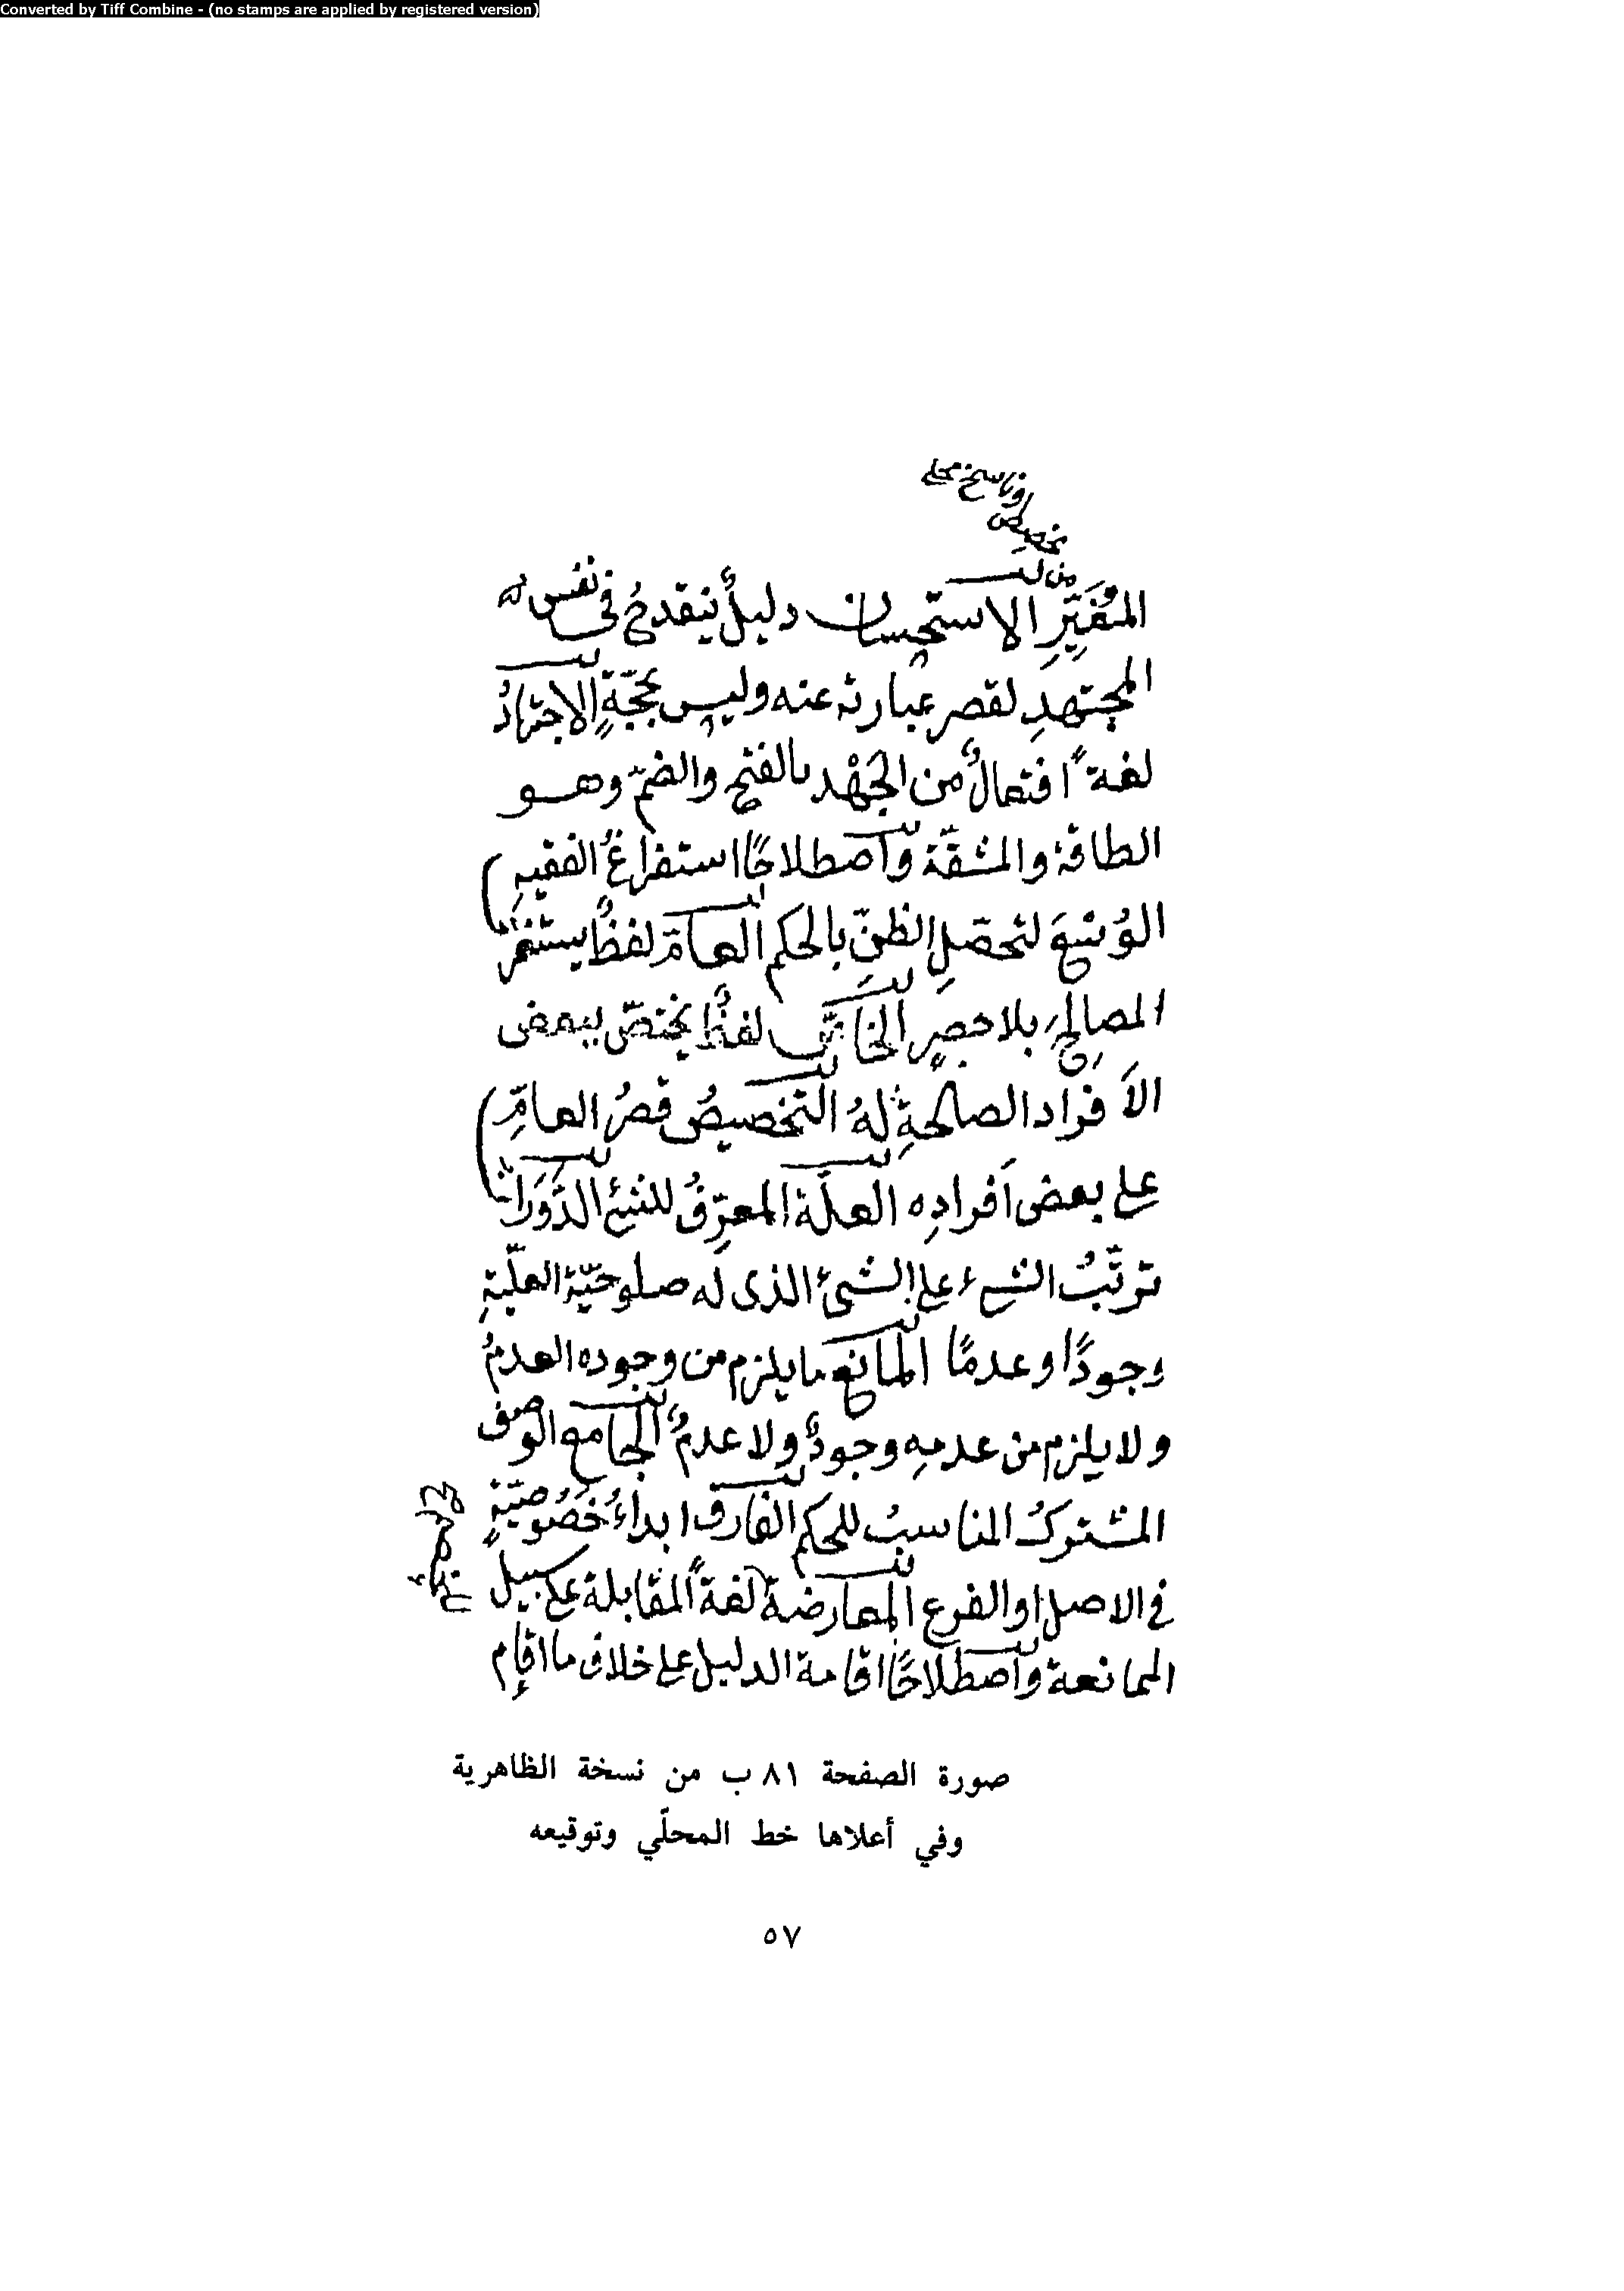 Converted by Tiff Combine - (no stamps are applied by registered version)
او ناسخ محلي
تخصيص
من
المُغَيِّرِ الاستحسان دليلٌ ينقدحُ في نفس
المجتهدِ لقصر عبارته عنه وليس بحجّةٍ الاجتهادُ
لغةً افتعالٌ من الجَهْد بالفتح والضمّ وهو
الطاقة والمشقّة واصطلاحًا استفراغُ الفقيهِ
الوُسْعَ لتحصيلِ الظنِّ بالحكم العامّ لفظٌ يستغرقُ
الصالح بلا حصرٍ الخاصّ لفظٌ يختصّ ببعض
الأفراد الصالحةِ لهُ التخصيصُ قصرُ العامِّ
على بعض أفرادِه العلّة المعرِّفُ للشئ الدَّوَرَانُ
ترتّبُ الشيء على الشئ الذى له صلوحيّة العلّيةِ
وجودًا وعدمًا المانع ما يلزم من وجوده العدمُ
ولا يلزم من عدمِه وجودٌ ولا عدمٌ الجامع الوصف
المشتركُ المناسبُ للحكم الفارق ابداءُ خُصُوصيّةٍ
في الاصل او الفرع المعارضة لغةً المقابلة على سبيل
الممانعة واصطلاحًا اقامة الدليل على خلاف ما اقام
صورة الصفحة ٨١ ب من نسخة الظاهرية
وفي أعلاها خط المحلّي وتوقيعه
٥٧